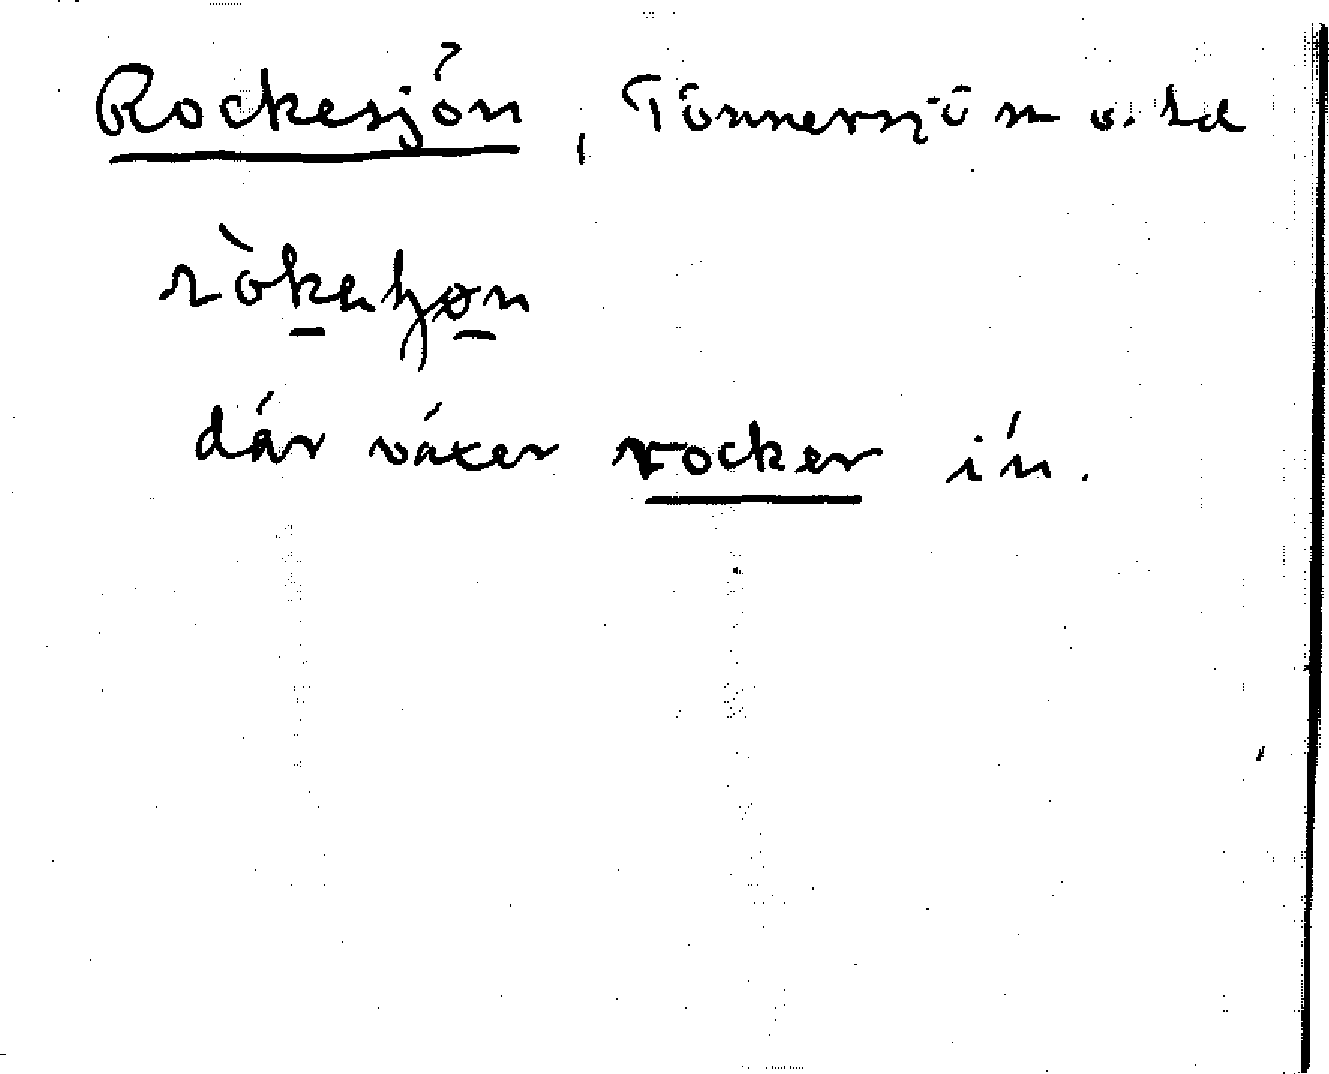 Rockesjön, Tönnersjö sn o. hd
ròkaʃøn
där växer rocker in.